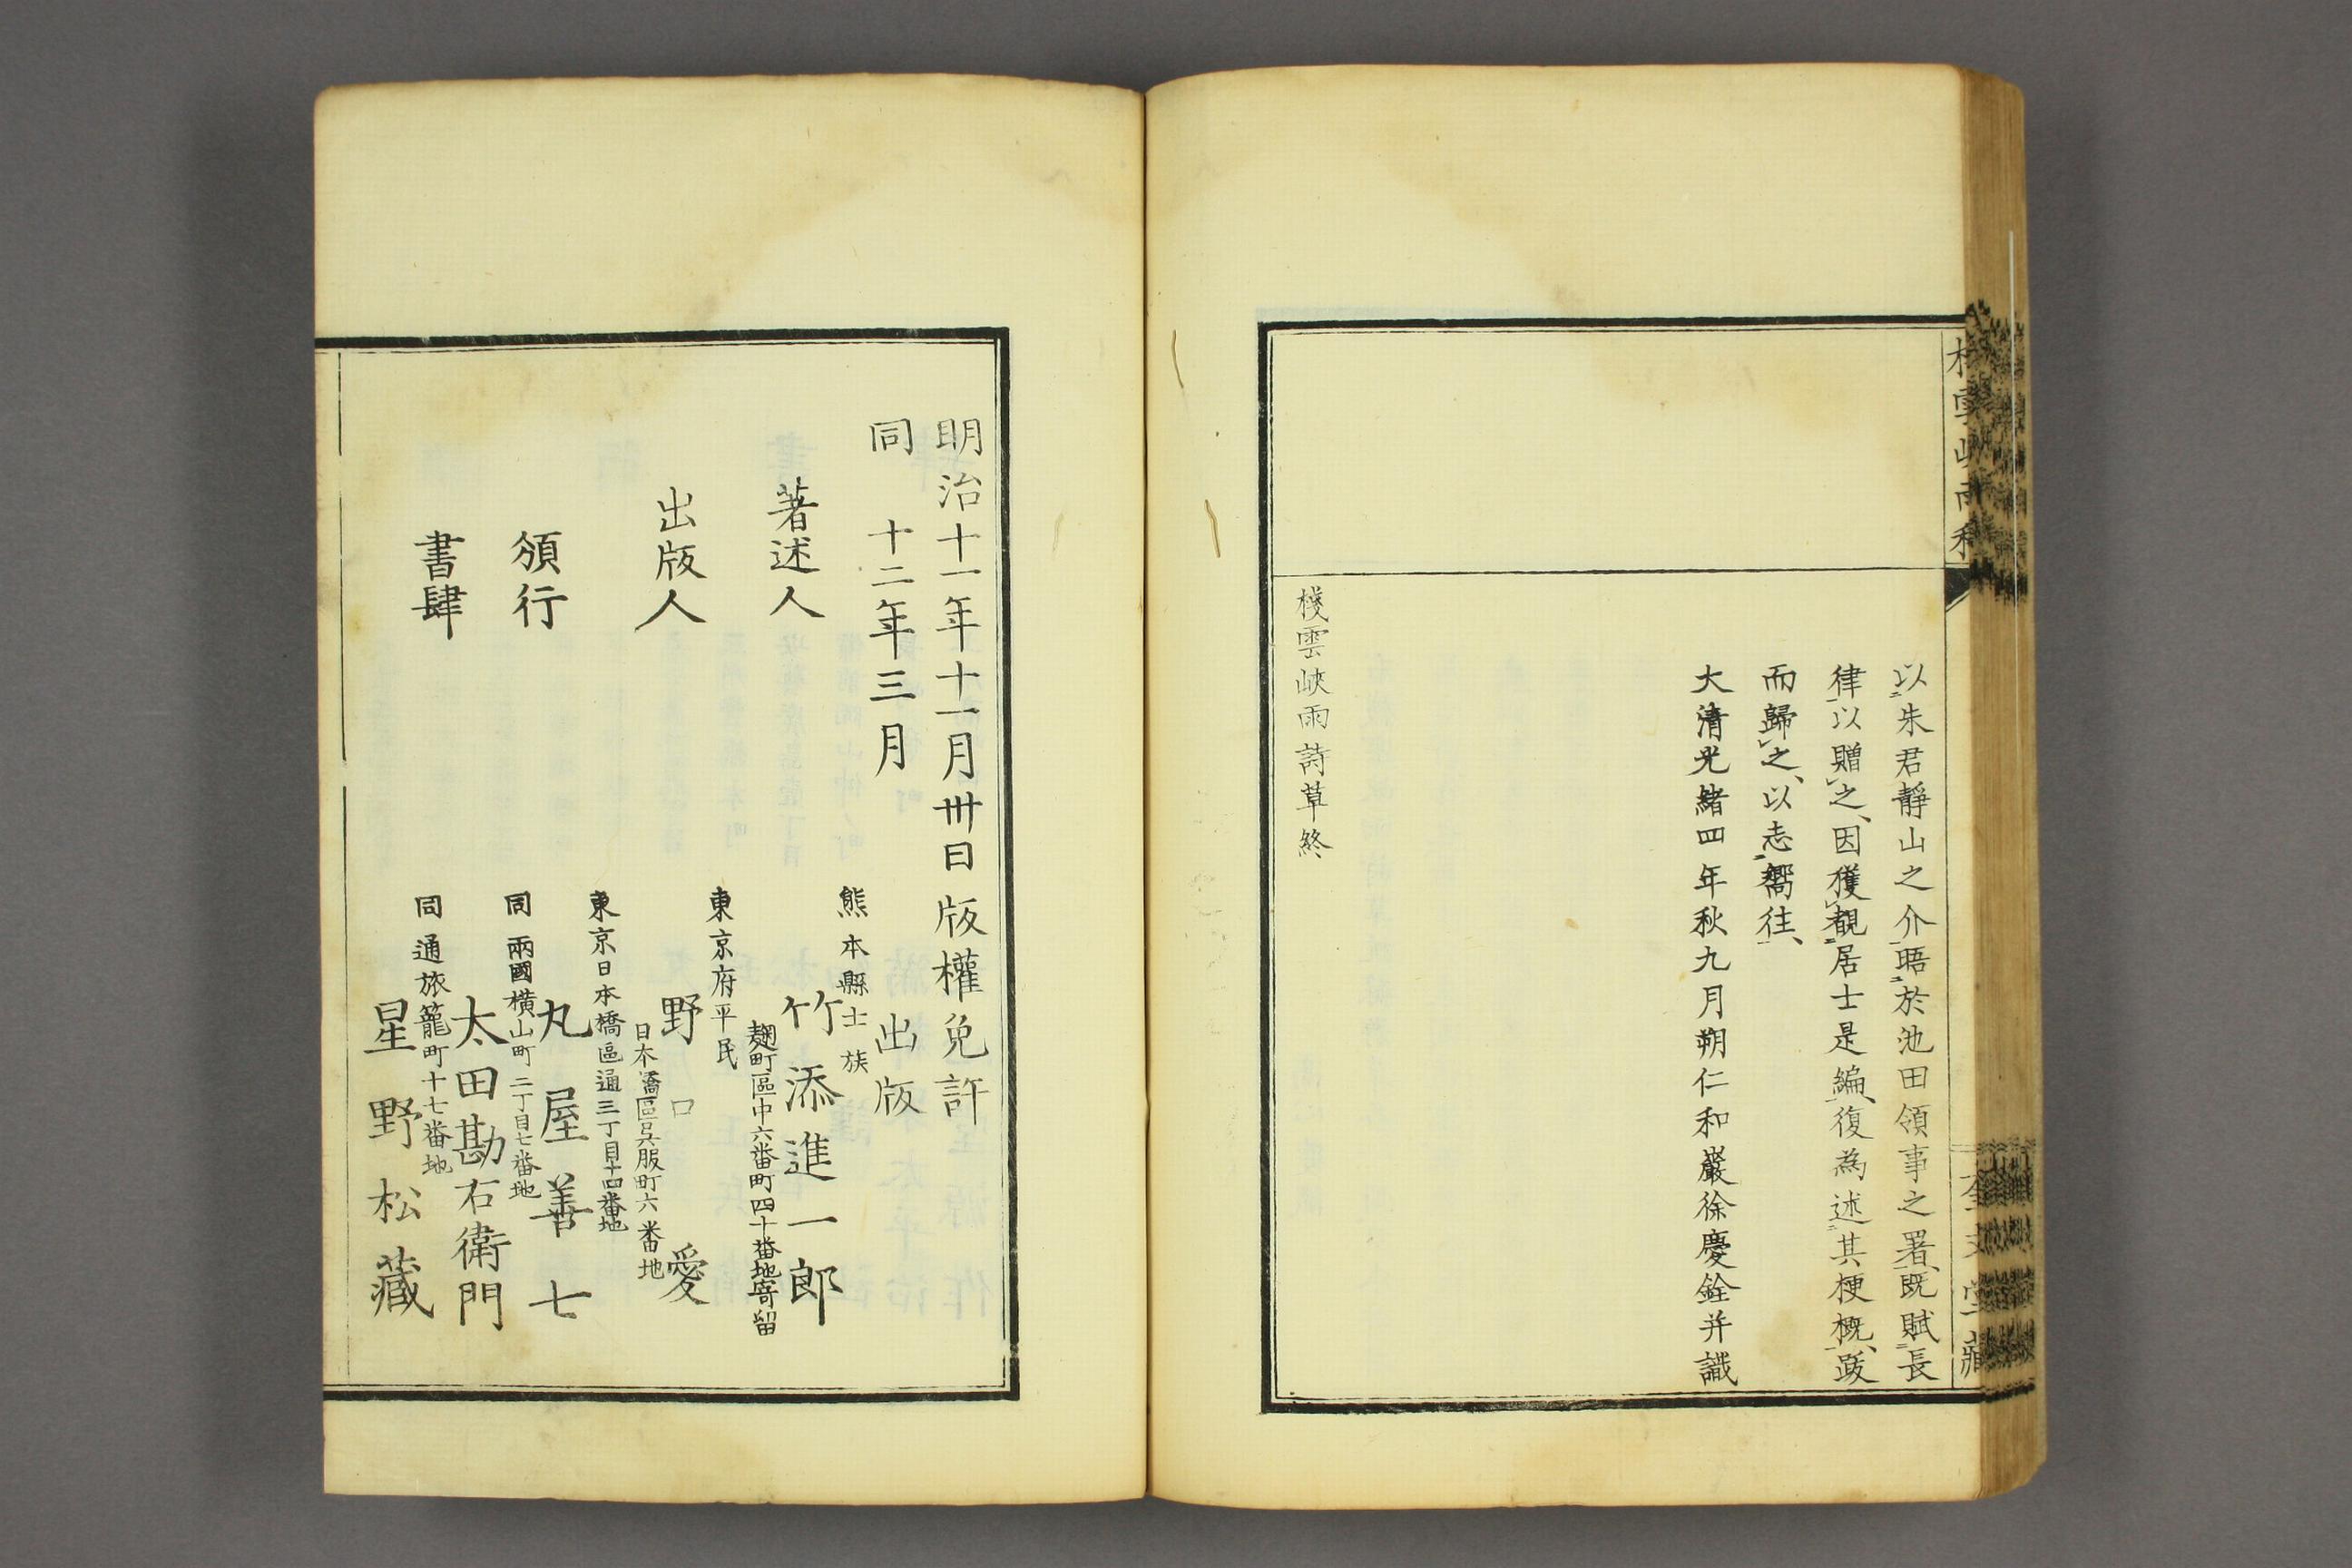 以朱君靜山之介晤於池田領事之署、既賦長
律以贈之、因獲觀居士是編、復為述其梗概、跋
而歸之、以志嚮往、
大清光緒四年秋九月朔仁和嚴徐慶銓并識
棧雲峽雨詩草終
明治十一年十一月卅日版權免許
同 十二年三月 出版
著述人
熊本縣士族
竹添進一郎
麹町區中六番町四十番地寄留
出版人
東京府平民
野口愛
日本橋區呉服町六番地
頒行
書肆
東京日本橋區通三丁目十四番地
丸屋善七
同 兩國橫山町二丁目七番地
太田勘右衛門
同 通旅籠町十七番地
星野松藏